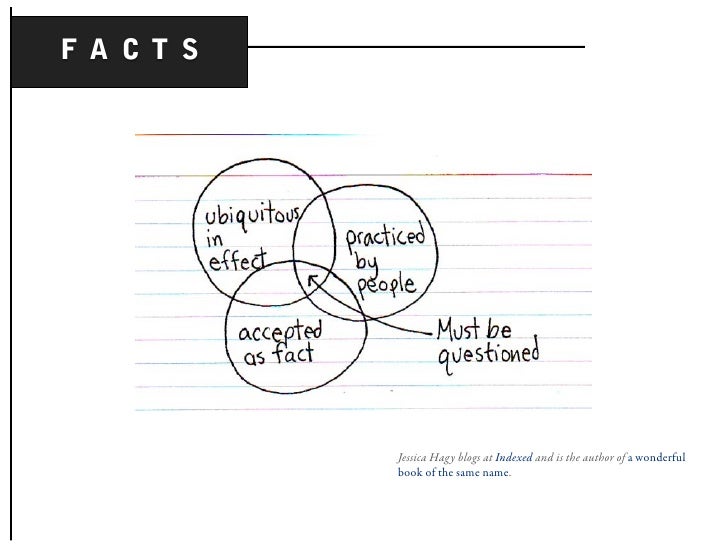 FACTS
ubiquitous
in
effect
practiced
by
people
accepted
as fact
Must be
questioned
Jessica Hagy blogs at Indexed and is the author of a wonderful
book of the same name.